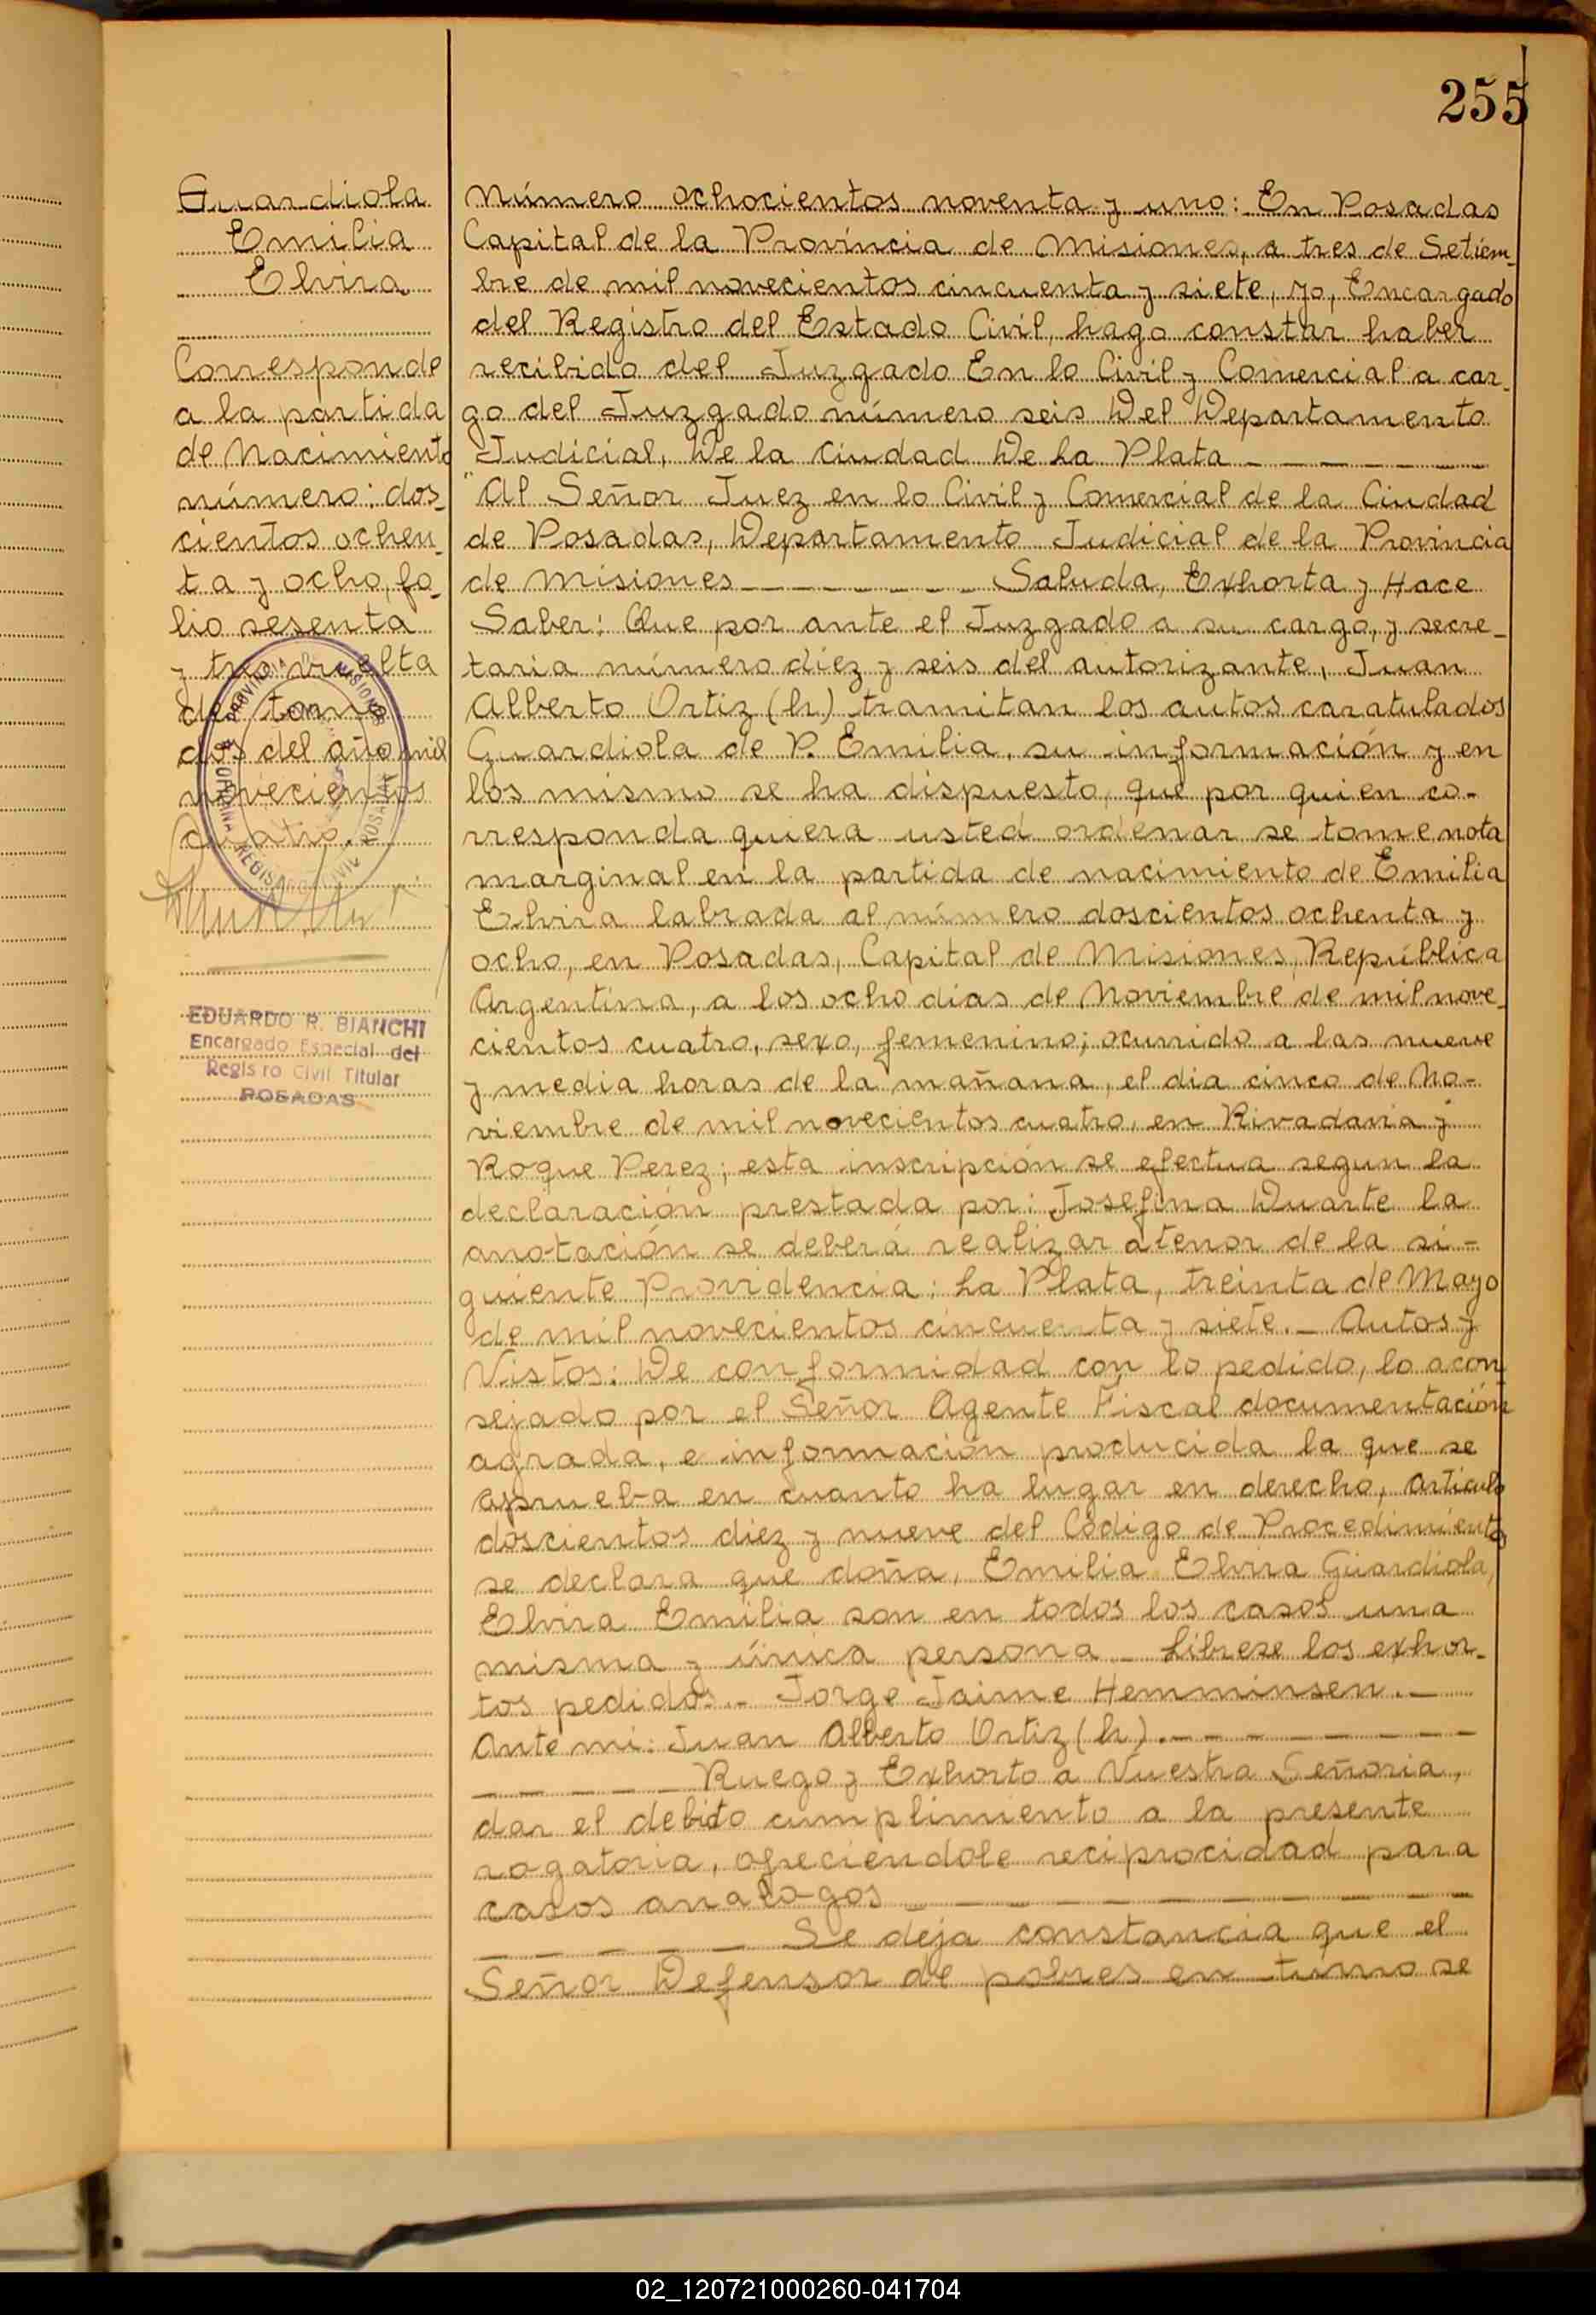 255
Guardiola
Emilia
Elvira
Corresponde
a la partida
de Nacimiento
número: dos_
cientos ochen_
ta y ocho, fo_
lio sesenta
y tres vuelta
del tomo
dos del año mil
novecientos
cuatro.
PROVINCIA MISIONES
OFICINA REGISTRO CIVIL POSADAS
EDUARDO R. BIANCHI
Encargado Especial del
Regis ro Civil Titular
POSADAS
Número ochocientos noventa y uno: En Posadas
Capital de la Província de Misiones, a tres de Setiem_
bre de mil novecientos cincuenta y siete, yo, Encargado
del Registro del Estado Civil, hago constar haber
recibido del Juzgado En lo Civil y Comercial a car_
go del Juzgado número seis Del Departamento
Judicial, De la Ciudad De La Plata _ _ _ _ _
"Al Señor Juez en lo Civil y Comercial de la Ciudad
de Posadas, Departamento Judicial de la Provincia
de Misiones _ _ _ _ _ Saluda, Exhorta y Hace
Saber: Que por ante el Juzgado a su cargo, y secre_
taria número diez y seis del autorizante, Juan
Alberto Ortiz (h) tramitan los autos caratulados
Guardiola de P. Emilia, su información y en
los mismo se ha dispuesto, que por quien co-
rresponda quiera usted ordenar se tome nota
marginal en la partida de nacimiento de Emilia
Elvira labrada al número doscientos ochenta y
ocho, en Posadas, Capital de Misiones, República
Argentina, a los ocho días de Noviembre de mil nove_
cientos cuatro, sexo, femenino; ocurrido a las nueve
y media horas de la mañana, el dia cinco de No-
viembre de mil novecientos cuatro, en Rivadavia y
Roque Perez; esta inscripción se efectua segun la
declaración prestada por: Josefina Duarte la
anotación se deberá realizar atenor de la si-
guiente Providencia: La Plata, treinta de Mayo
de mil novecientos cincuenta y siete._ Autos y
Vistos: De conformidad con lo pedido, lo acon
sejado por el Señor Agente Fiscal documentación
agrada, e información producida la que se
aprueba en cuanto ha lugar en derecho, Articulo
doscientos diez y nueve del Código de Procedimientos
se declara que doña, Emilia Elvira Guardiola,
Elvira Emilia son en todos los casos una
misma y única persona _ Librese los exhor_
tos pedidos._ Jorge Jaime Hemminsen._
Ante mi: Juan Alberto Ortiz (h). _ _ _ _ _
_ _ _ _ Ruego y Exhorto a Vuestra Señoria,
dar el debido cumplimiento a la presente
rogatoria, ofreciendole reciprocidad para
casos analogos _ _ _ _ _
_ _ _ _ _ Se deja constancia que el
Señor Defensor de pobres en turno se
02_120721000260-041704